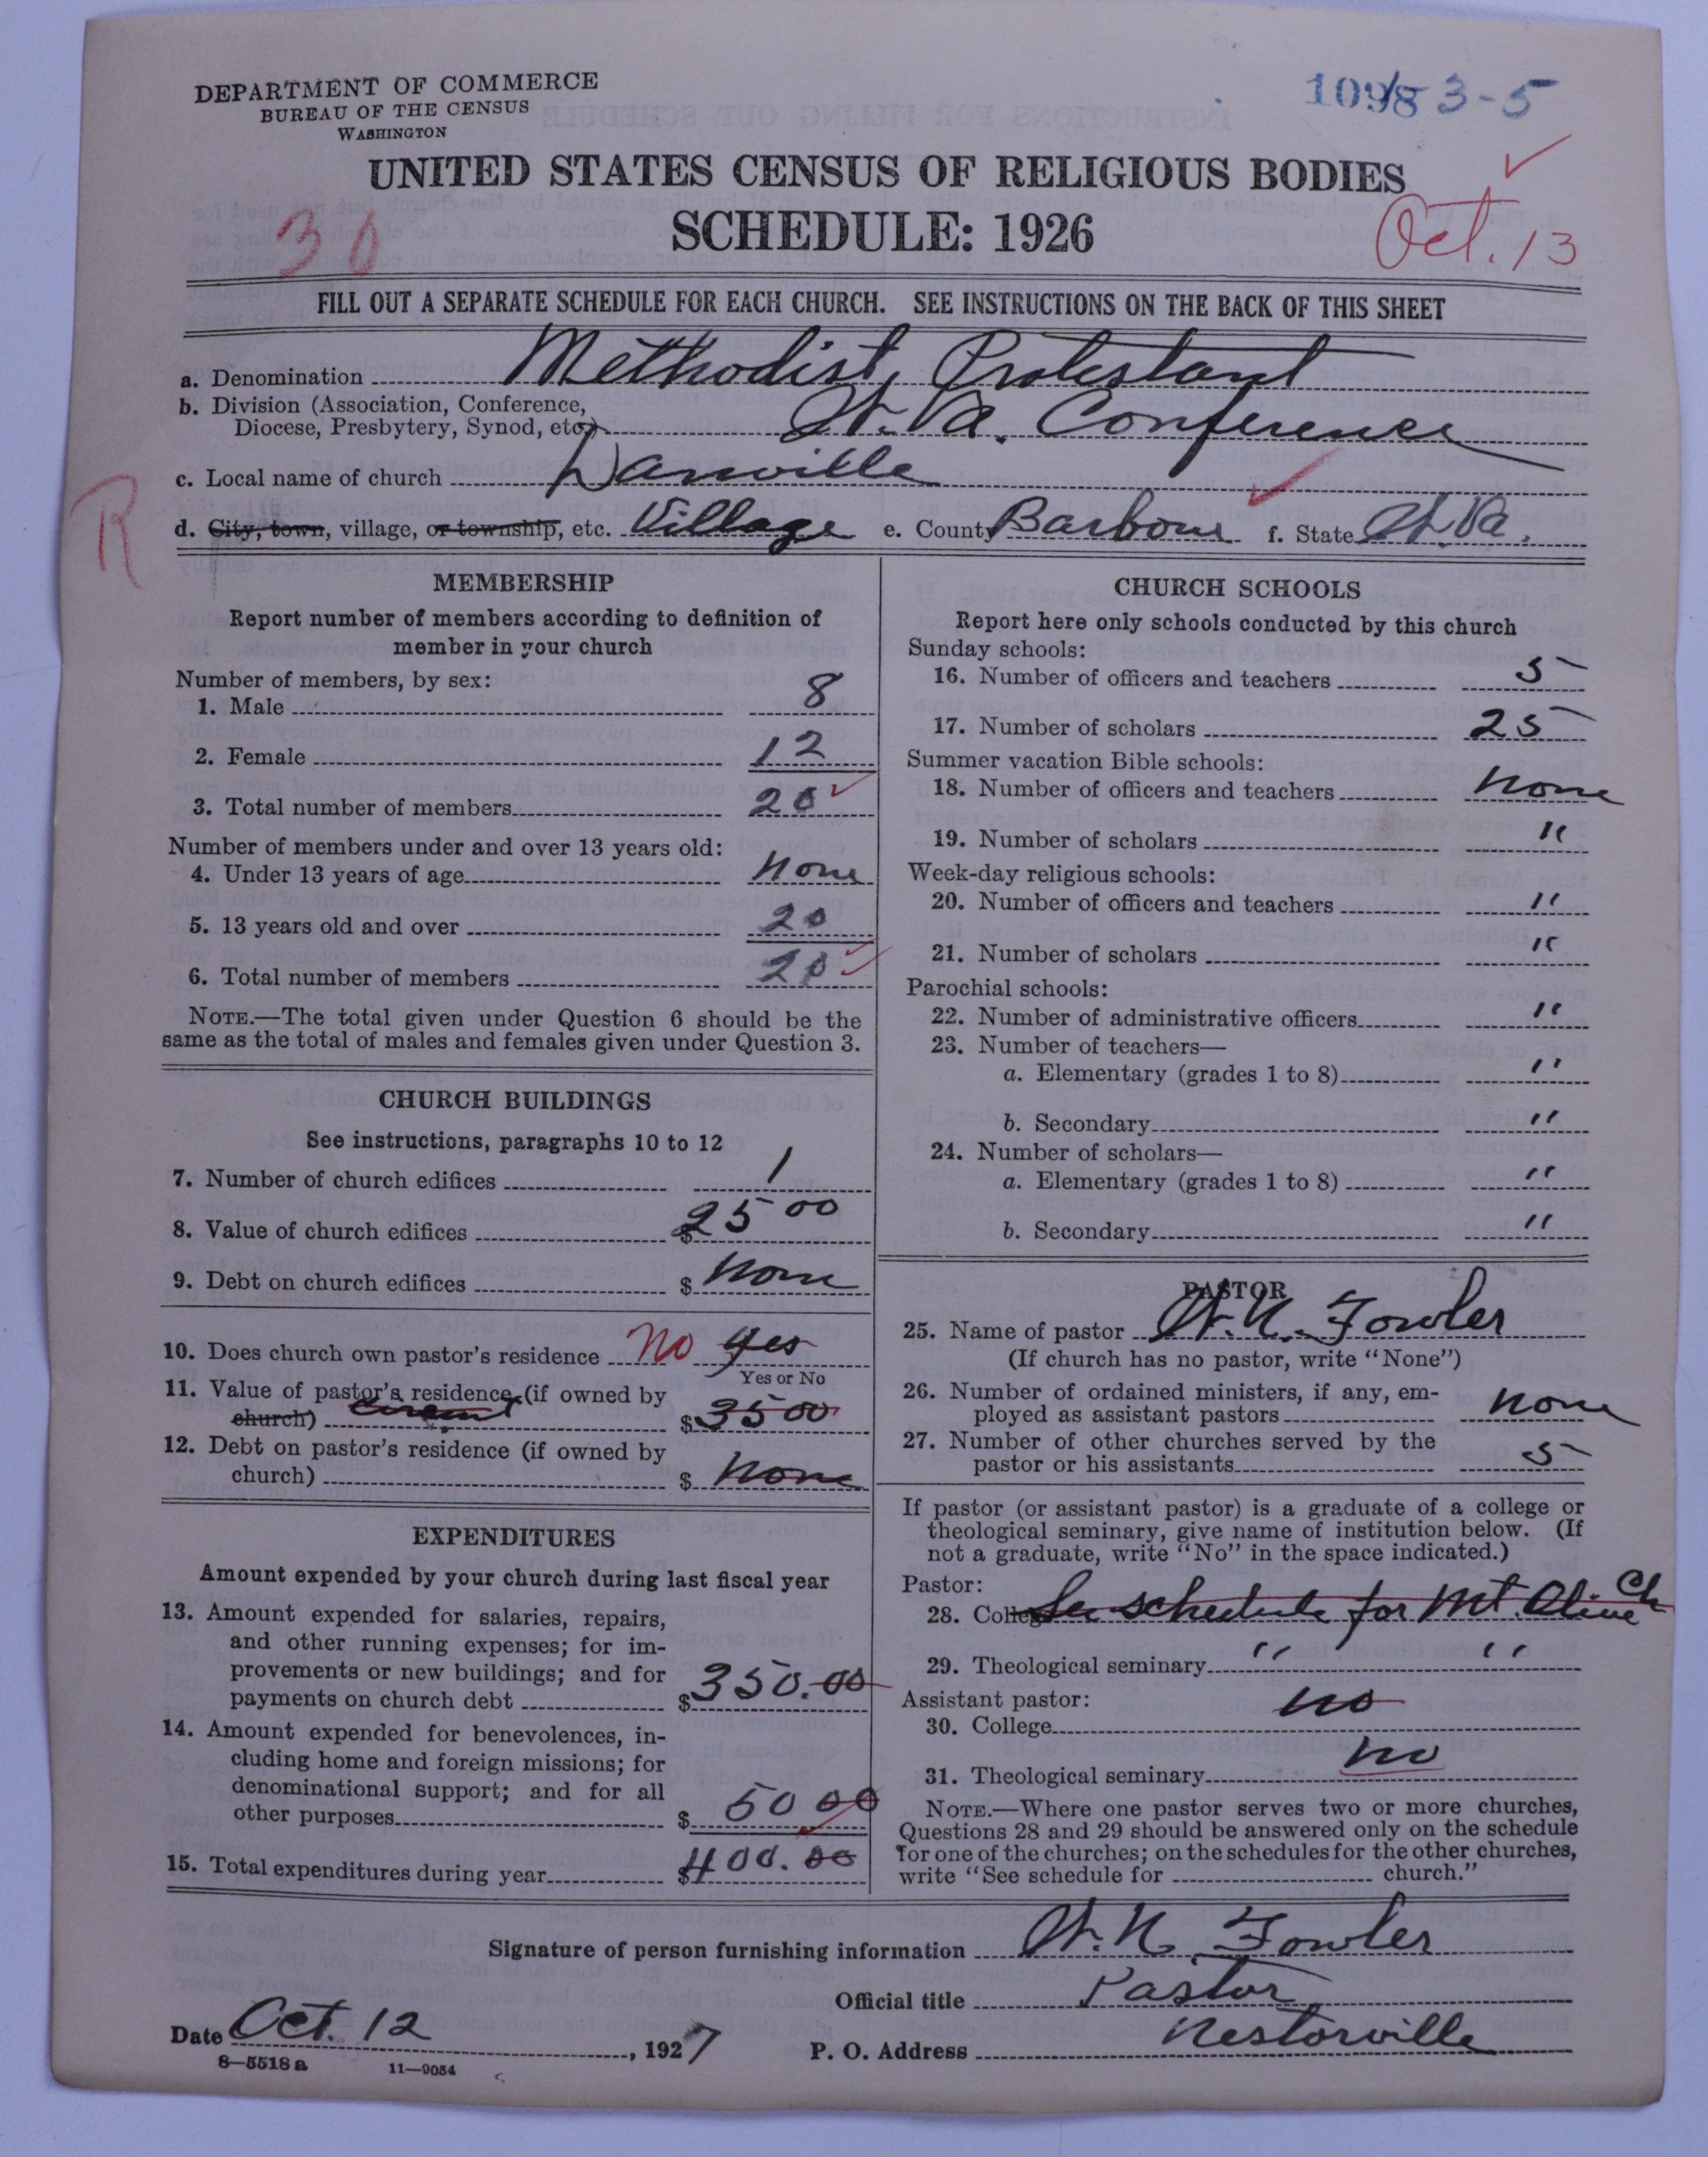 DEPARTMENT OF COMMERCE
BUREAU OF THE CENSUS
WASHINGTON
3-5
UNITED STATES CENSUS OF RELIGIOUS BODIES
SCHEDULE: 1926
30
Oct. 13
FILL OUT A SEPARATE SCHEDULE FOR EACH CHURCH. SEE INSTRUCTIONS ON THE BACK OF THIS SHEET
a. Denomination Methodist Protestant
b. Division (Association, Conference,
Diocese, Presbytery, Synod, etc.) W. Va. Conference
c. Local name of church Danville
R
d. City, town, village, or township, etc. Village e. County Barbour f. State W. Va.
MEMBERSHIP
Report number of members according to definition of
member in your church
Number of members, by sex:
1. Male 8
2. Female 12
3. Total number of members 20
Number of members under and over 13 years old:
4. Under 13 years of age None
5. 13 years old and over 20
6. Total number of members 20
NOTE.—The total given under Question 6 should be the
same as the total of males and females given under Question 3.
CHURCH BUILDINGS
See instructions, paragraphs 10 to 12
7. Number of church edifices 1
8. Value of church edifices $2500
9. Debt on church edifices $ None
10. Does church own pastor's residence No Yes
Yes or No
11. Value of pastor's residence (if owned by
church) circuit $3500
12. Debt on pastor's residence (if owned by
church) $ None
EXPENDITURES
Amount expended by your church during last fiscal year
13. Amount expended for salaries, repairs,
and other running expenses; for im-
provements or new buildings; and for
payments on church debt $350.00
14. Amount expended for benevolences, in-
cluding home and foreign missions; for
denominational support; and for all
other purposes $ 50 00
15. Total expenditures during year $400.00
CHURCH SCHOOLS
Report here only schools conducted by this church
Sunday schools:
16. Number of officers and teachers 5
17. Number of scholars 25
Summer vacation Bible schools:
18. Number of officers and teachers None
19. Number of scholars "
Week-day religious schools:
20. Number of officers and teachers "
21. Number of scholars "
Parochial schools:
22. Number of administrative officers "
23. Number of teachers—
a. Elementary (grades 1 to 8) "
b. Secondary "
24. Number of scholars—
a. Elementary (grades 1 to 8) "
b. Secondary "
PASTOR
25. Name of pastor W. N. Fowler
(If church has no pastor, write "None")
26. Number of ordained ministers, if any, em-
ployed as assistant pastors None
27. Number of other churches served by the
pastor or his assistants 5
If pastor (or assistant pastor) is a graduate of a college or
theological seminary, give name of institution below. (If
not a graduate, write "No" in the space indicated.)
Pastor:
28. College See schedule for Mt. Olive Ch
29. Theological seminary " "
Assistant pastor:
30. College no
31. Theological seminary no
NOTE.—Where one pastor serves two or more churches,
Questions 28 and 29 should be answered only on the schedule
for one of the churches; on the schedules for the other churches,
write "See schedule for church."
Signature of person furnishing information W. N. Fowler
Official title Pastor
Date Oct. 12, 1927 P. O. Address Nestorville
8—5518a 11—9054